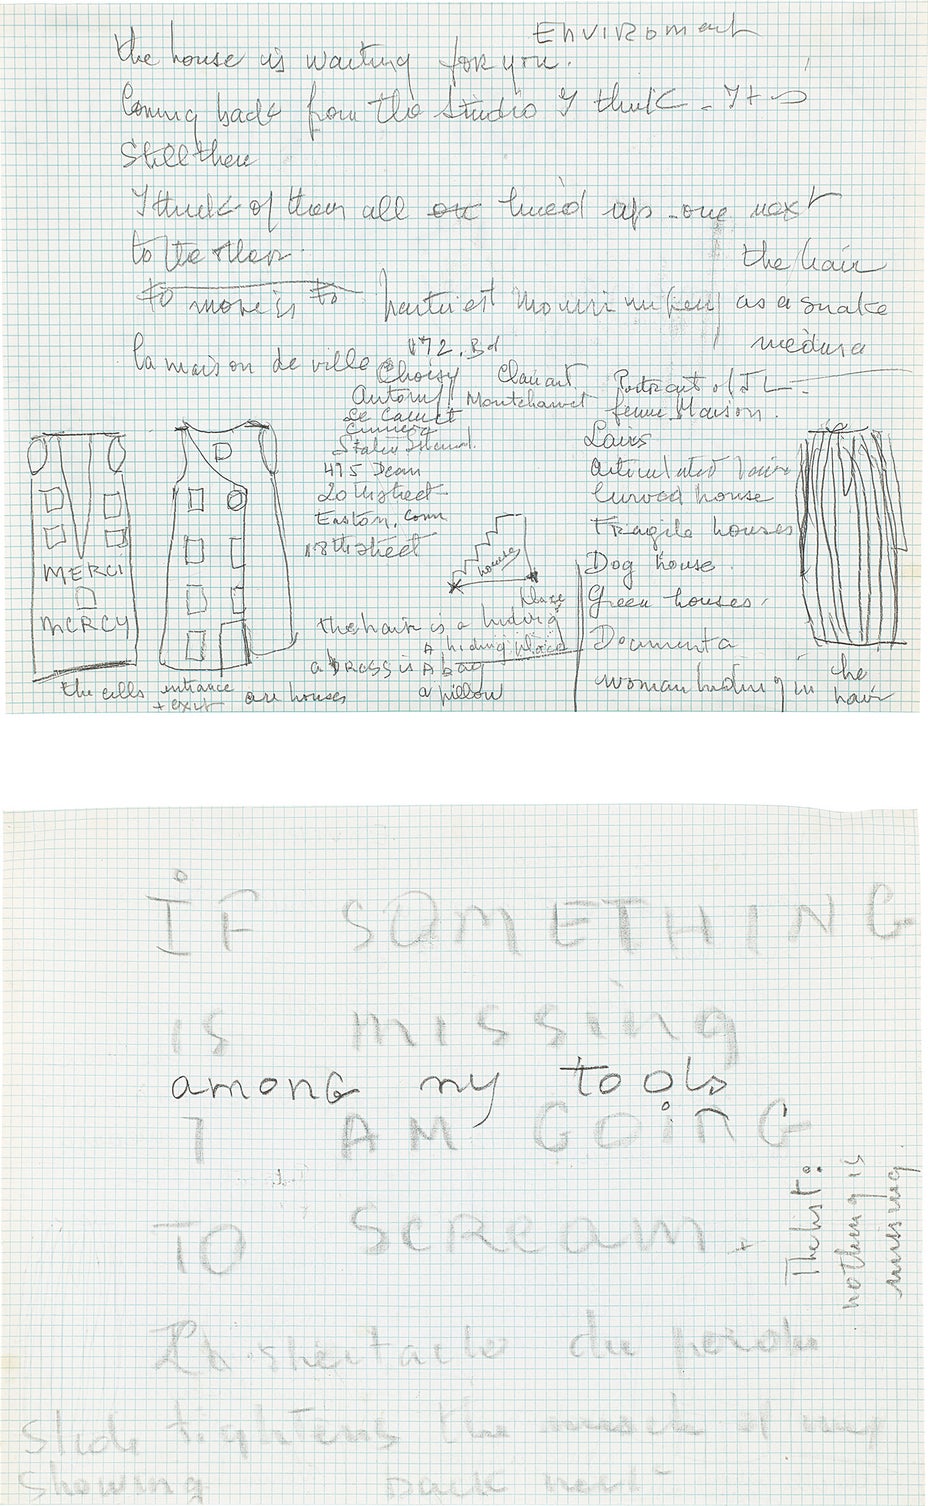 Enviroment
the house is waiting for you.
Coming back from the studio I think - It is
Still there
I think of them all lined up - one next
to the other.
the hair
to move is to partir est mourir un peu as a snake
medusa
la maison de ville 172. Bd
Choisy Clamart
Antony Montchauvet Portrait of J L -
Le Cannet femme Maison.
Lairs
Articulated lair
475 Dean
20th street Curved house
Easton, Conn Fragile houses
18th street
houses
Dog house
MERCI
Green houses,
MERCY
the hair is a hiding
A hiding place Documenta
a DRESS is A bag
a pillow
woman hiding in the hair
the cells entrance + exit are houses
IF SOMETHING
is missing
among my tools
I AM GOING
TO SCREAM.
The list:
nothing is
missing.
Slide tightens the of my
Showing neck